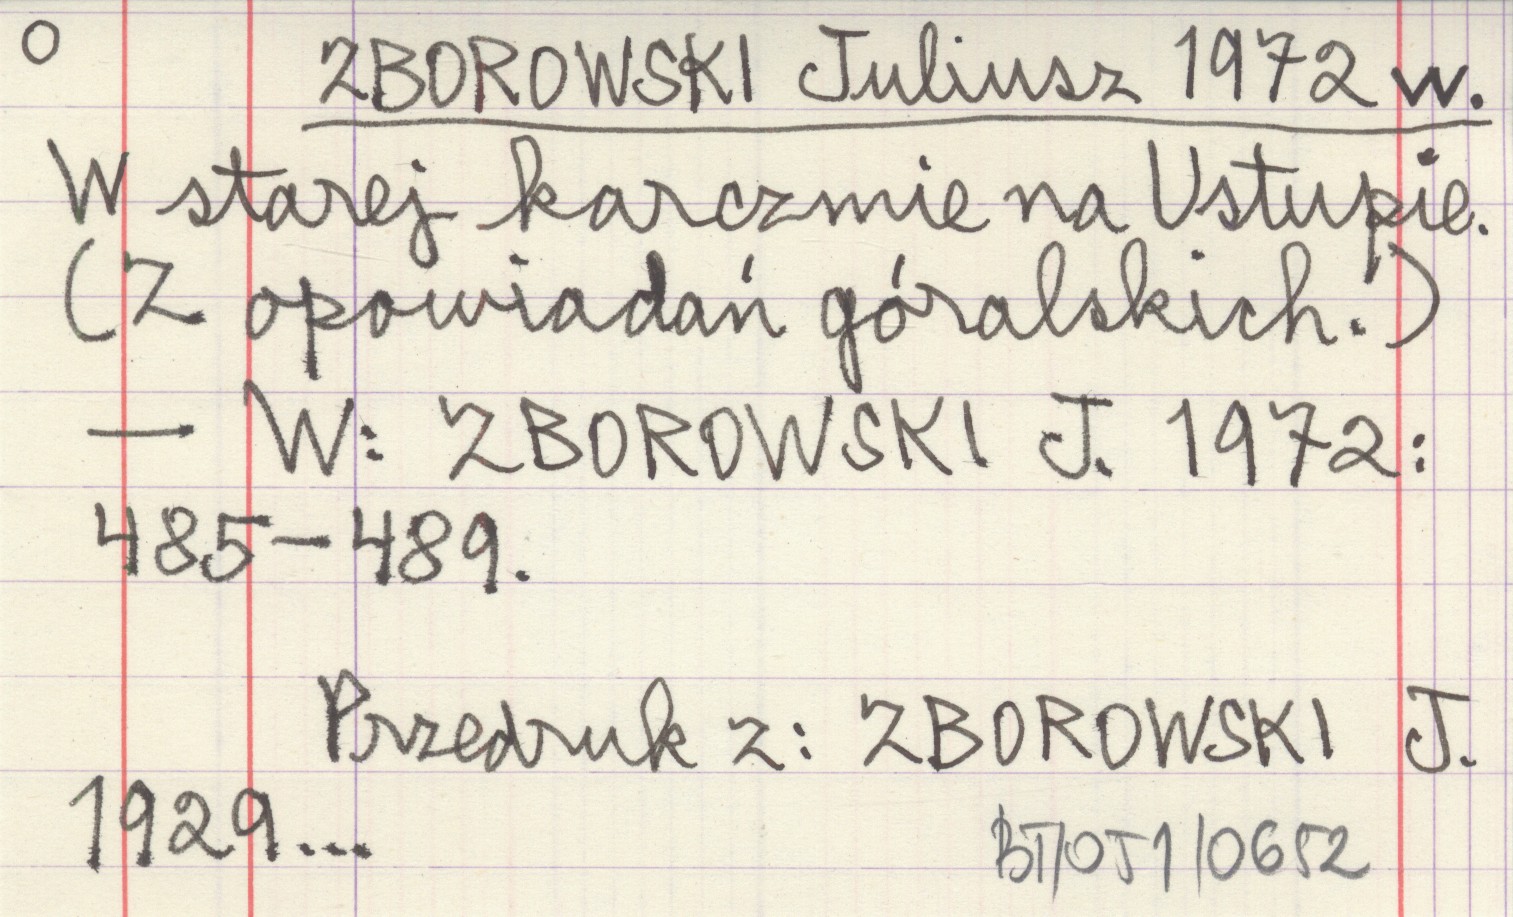 O ZBOROWSKI Juliusz 1972 w.
W starej karczmie na Ustupie.
(Z opowiadań góralskich.)
— W: ZBOROWSKI J. 1972:
485-489.
Przedruk z: ZBOROWSKI J.
1929...
BT/OJ1/0652